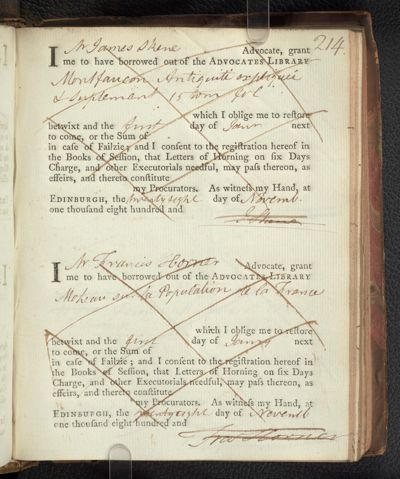 214
I Mr James Skene Advocate, grant
me to have borrowed out of the ADVOCATES LIBRARY
Montfaucon Antiquité expliquée
& Suplement 15 tom
which I oblige me to reſtore
betwixt and the first day of Janr next
to come, or the Sum of
in caſe of Failzie; and I conſent to the regiſtration hereof in
the Books of Seſſion, that Letters of Horning on ſix Days
Charge, and other Executorials needful, may paſs thereon, as
effeirs, and thereto conſtitute
my Procurators. As witneſs my Hand, at
EDINBURGH, the twenty eight day of Novemb.
one thouſand eight hundred and
J Skene
I Mr Francis Horner Advocate, grant
me to have borrowed out of the ADVOCATES LIBRARY
sur la Population de la France
which I oblige me to reſtore
betwixt and the first day of Janry next
to come, or the Sum of
in caſe of Failzie; and I conſent to the regiſtration hereof in
the Books of Seſſion, that Letters of Horning on ſix Days
Charge, and other Executorials needful, may paſs thereon, as
effeirs, and thereto conſtitute
my Procurators. As witneſs my Hand, at
EDINBURGH, the twenty eight day of Novemb
one thouſand eight hundred and
Fras Horner